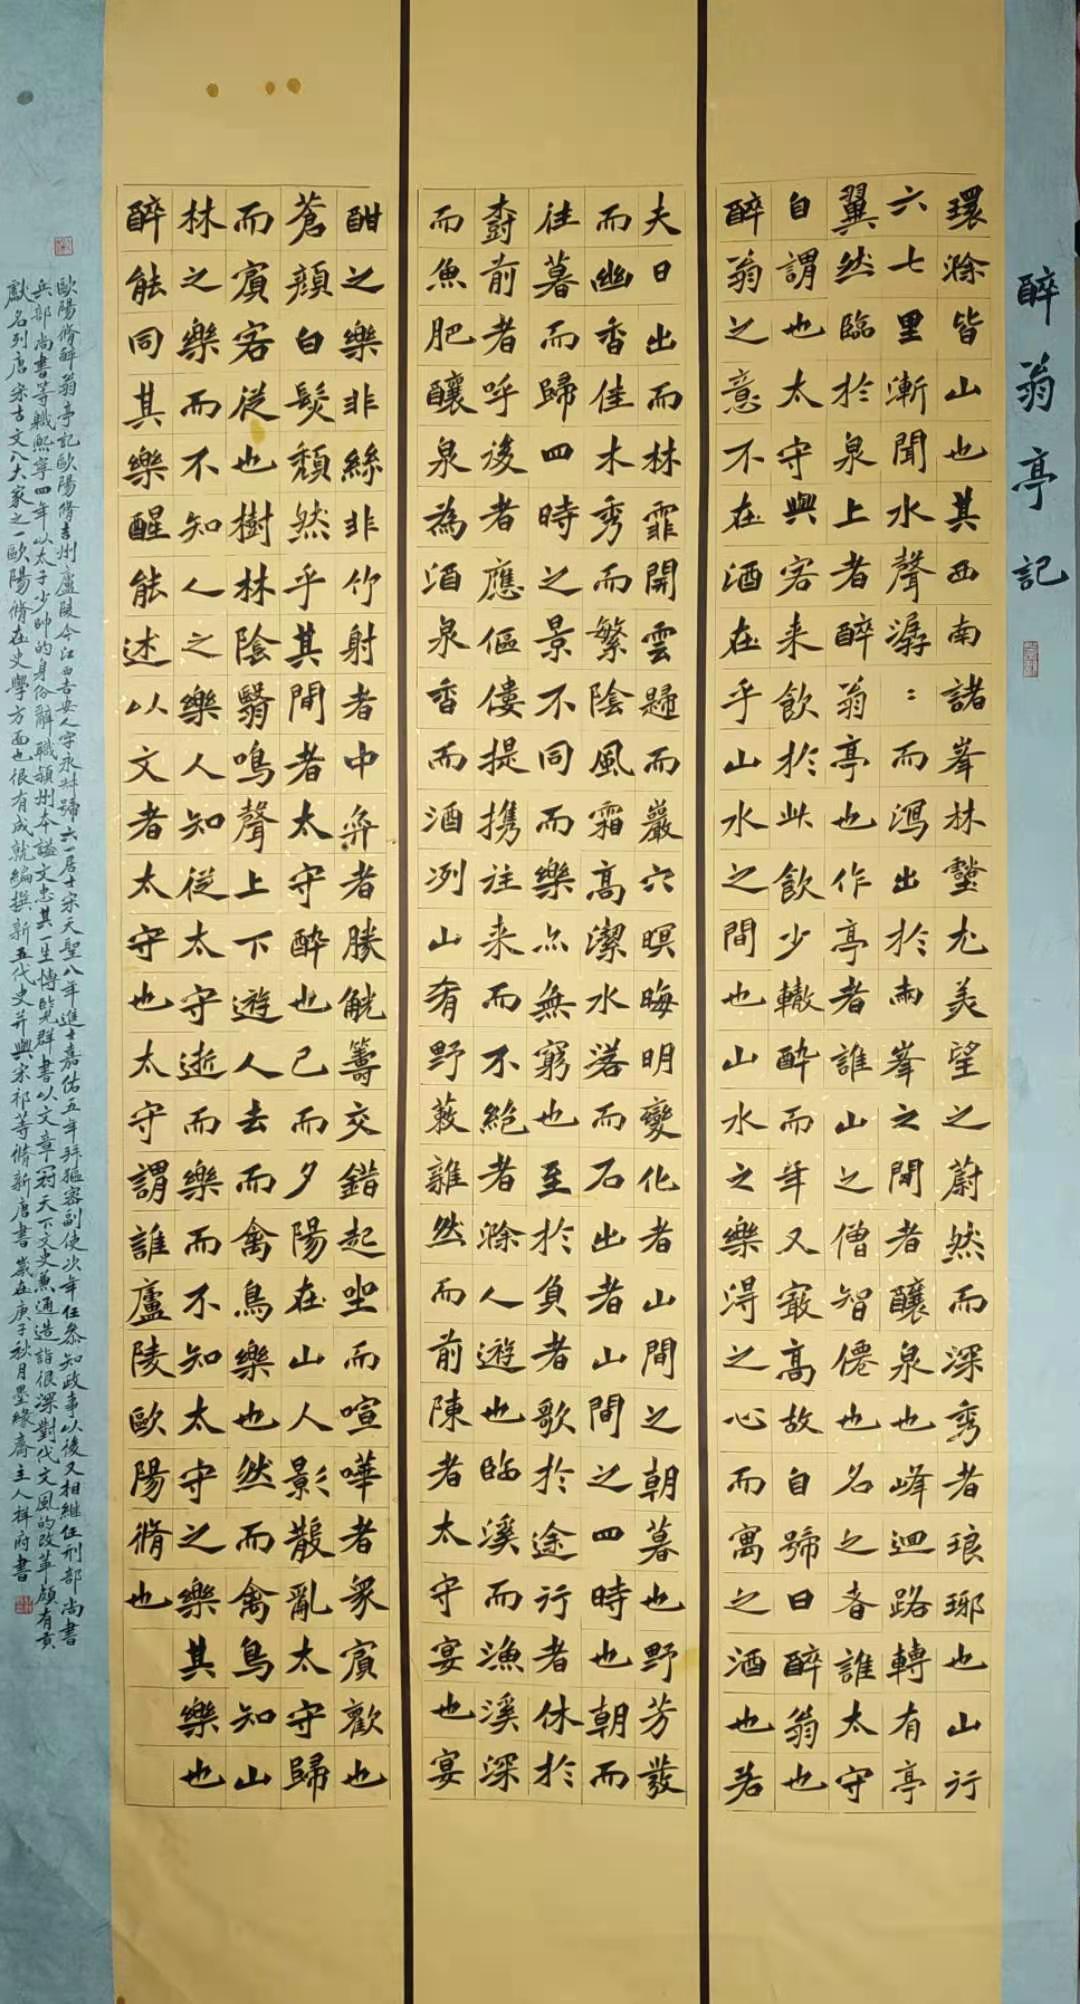 醉翁亭記
環滁皆山也其西南諸峯林壑尤美望之蔚然而深秀者琅琊也山行
六七里漸聞水聲潺〻而瀉出於兩峯之間者釀泉也峰迴路轉有亭
翼然臨於泉上者醉翁亭也作亭者誰山之僧智僊也名之者誰太守
自謂也太守與客来飲於此飲少輙醉而年又最高故自號曰醉翁也
醉翁之意不在酒在乎山水之間也山水之樂得之心而寓之酒也若
夫日出而林霏開雲歸而巖穴暝晦明變化者山間之朝暮也野芳發
而幽香佳木秀而繁陰風霜高潔水落而石出者山間之四時也朝而
往暮而歸四時之景不同而樂亦無窮也至於負者歌於途行者休於
樹前者呼後者應傴僂提携往来而不絶者滁人遊也臨溪而漁溪深
而魚肥釀泉為酒泉香而酒冽山肴野蔌雜然而前陳者太守宴也宴
酣之樂非絲非竹射者中弈者勝觥籌交錯起坐而喧嘩者衆賓歡也
蒼顔白髮頹然乎其間者太守醉也已而夕陽在山人影散亂太守歸
而賓客從也樹林陰翳鳴聲上下遊人去而禽鳥樂也然而禽鳥知山
林之樂而不知人之樂人知從太守遊而樂而不知太守之樂其樂也
醉能同其樂醒能述以文者太守也太守謂誰廬陵歐陽脩也
歐陽脩醉翁亭記歐陽脩吉州廬陵今江西吉安人字永叔號六一居士宋天聖八年進士嘉佑五年拜樞密副使次年任參知政事以後又相継任刑部尚書
兵部尚書等職熙寧四年以太子少帥的身份辭職頴州卒謚文忠其一生博覽群書以文章冠天下文史兼通造詣很深對代文風的改革頗有貢
獻名列唐宋古文八大家之一歐陽脩在史學方面也很有成就編撰新五代史并與宋祁等脩新唐書歲在庚子秋月墨緣齋主人祥府書